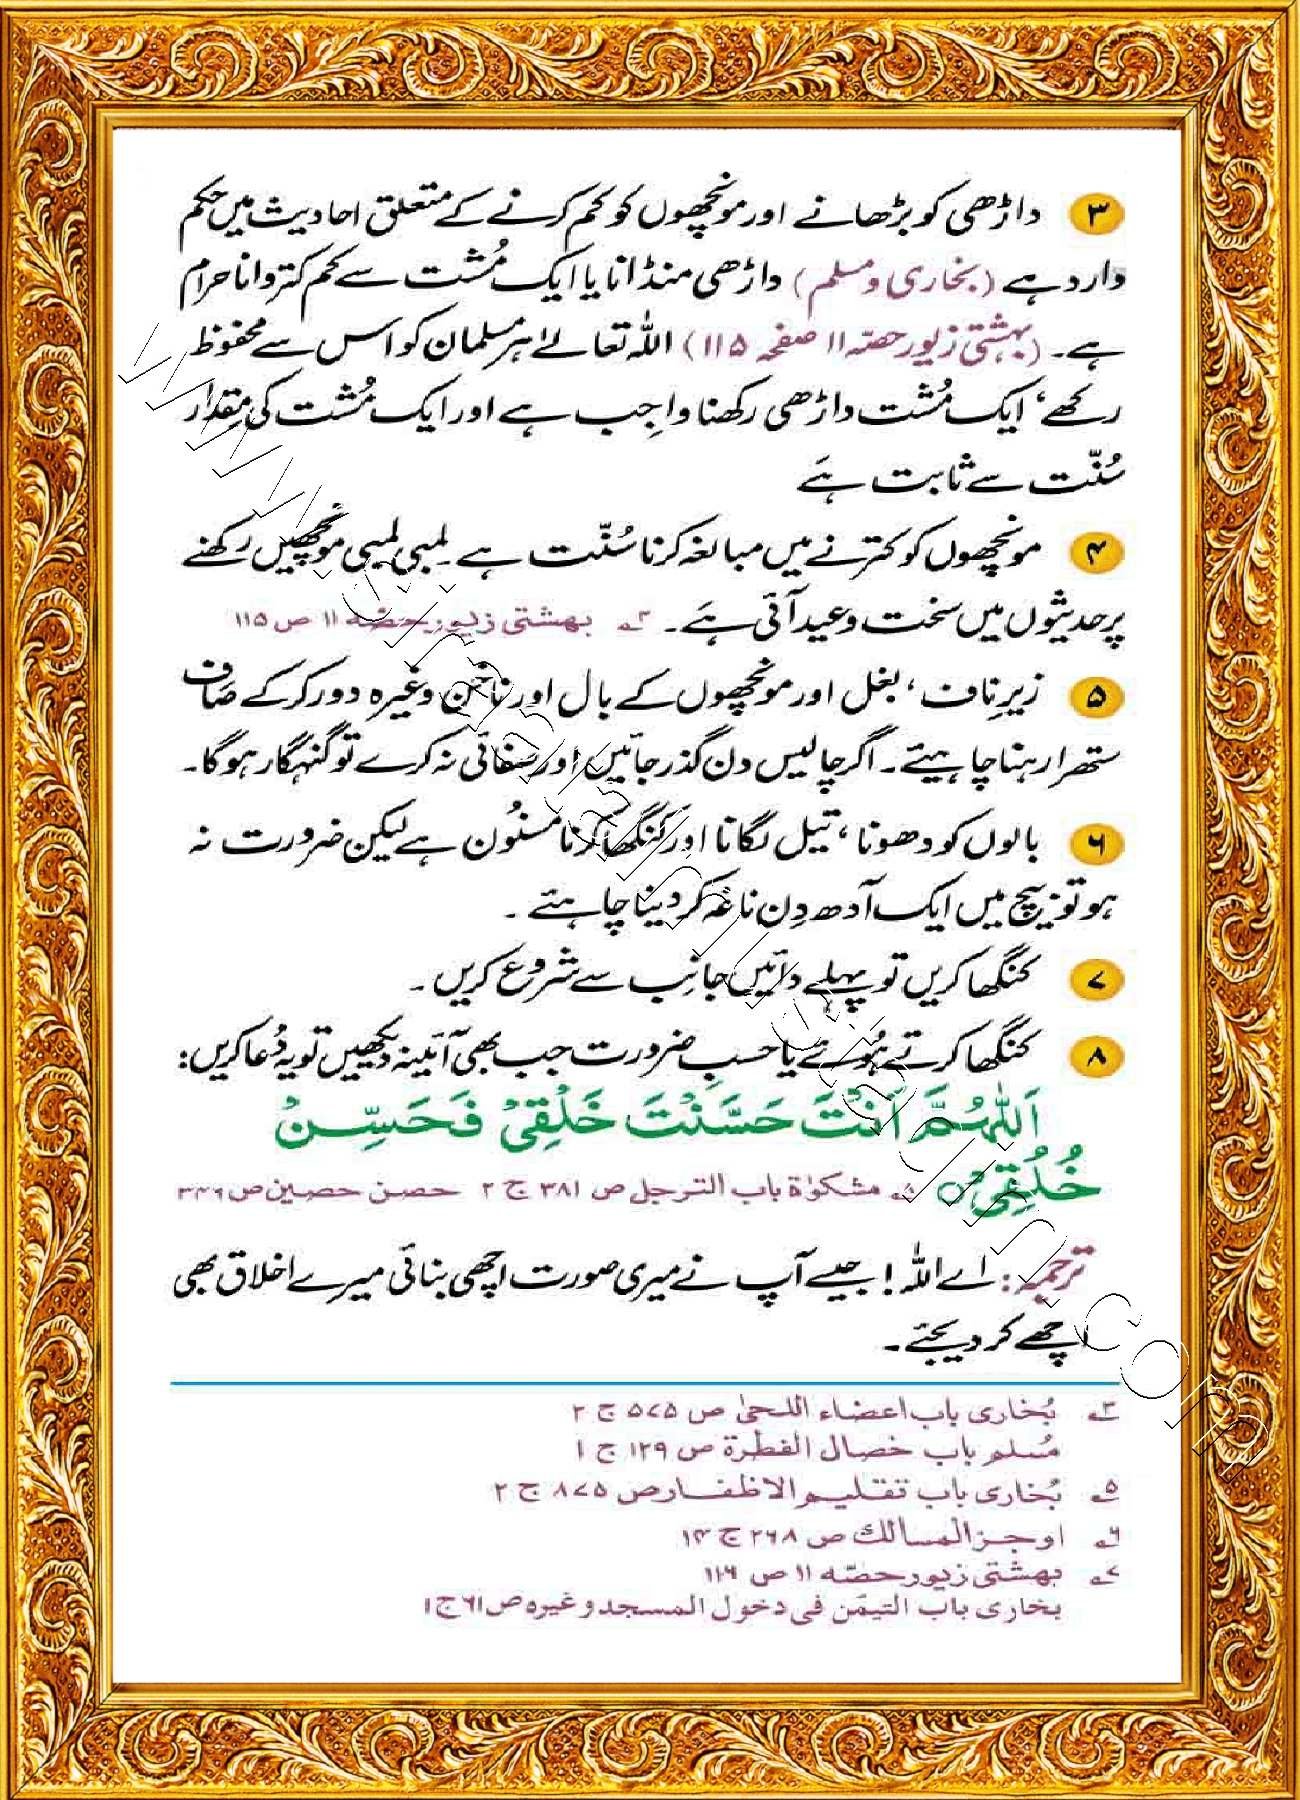 ۳ داڑھی کو بڑھانے اور مونچھوں کو کم کرنے کے متعلق احادیث میں حکم
وارد ہے (بخاری و مسلم) داڑھی منڈانا یا ایک مُشت سے کم کتروانا حرام
ہے۔ (بہشتی زیور حصّہ ۱۱ صفحہ ۱۱۵) اللہ تعالےٰ ہر مسلمان کو اس سے محفوظ
رکھے، ایک مُشت داڑھی رکھنا واجِب ہے اور ایک مُشت کی مِقدار
سُنّت سے ثابت ہَے
۴ مونچھوں کو کترنے میں مبالغہ کرنا سُنّت ہے۔ لمبی لمبی مونچھیں رکھنے
پر حدیثوں میں سخت وعید آئی ہَے۔ ۳؎ بہشتی زیور حصّہ ۱۱ ص ۱۱۵
۵ زیرِ ناف، بغل اور مونچھوں کے بال اور ناخن وغیرہ دور کرکے صاف
ستھرا رہنا چاہیئے۔ اگر چالیس دن گذر جائیں اور صفائی نہ کرے تو گنہگار ہوگا۔
۶ بالوں کو دھونا، تیل لگانا اور کنگھا کرنا مسنُون ہے لیکن ضرورت نہ
ہو تو بیچ میں ایک آدھ دِن ناغہ کر دینا چاہئے۔
۷ کنگھا کریں تو پہلے دائیں جانِب سے شروع کریں۔
۸ کنگھا کرتے ہُوئے یا حسبِ ضرورت جب بھی آئینہ دیکھیں تو یہ دُعا کریں:
اَللّٰهُمَّ اَنْتَ حَسَّنْتَ خَلْقِیْ فَحَسِّنْ
خُلُقِیْ ۵؎ مشکوٰة باب الترجل ص ۳۸۱ ج ۲ حصن حصین ص ۳۴۶
ترجمہ: اے اللہ! جیسے آپ نے میری صورت اچھی بنائی میرے اخلاق بھی
اچھے کر دیجئے۔
۳؎ بُخاری باب اعضاء اللحیٰ ص ۵۷۵ ج ۲
مُسلم باب خصال الفطرة ص ۱۲۹ ج ۱
۵؎ بُخاری باب تقلیم الاظفار ص ۸۷۵ ج ۲
۶؎ اوجز المسالك ص ۲۶۸ ج ۱۴
۷؎ بهشتی زیور حصّه ۱۱ ص ۱۱۶
بخاری باب التیمّن فی دخول المسجد وغیره ص ۶۱ ج ۱